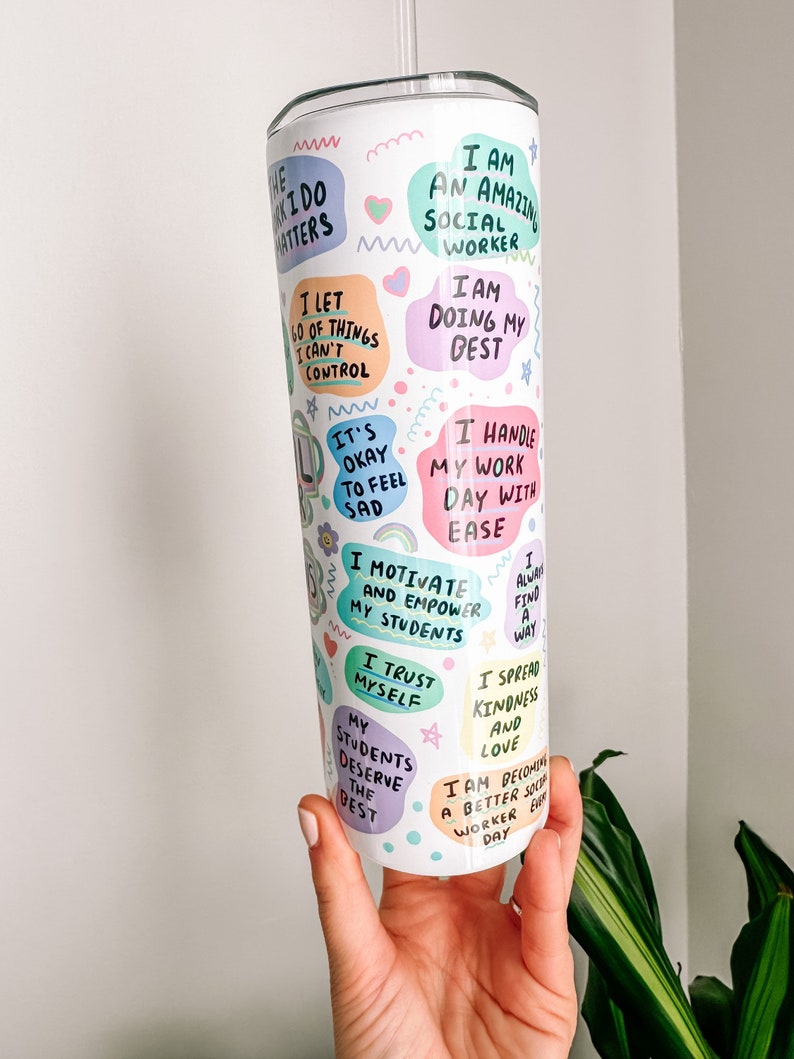 THE
WORK I DO
MATTERS
I AM
AN AMAZING
SOCIAL
WORKER
I LET
GO OF THINGS
I CAN'T
CONTROL
I AM
DOING MY
BEST
IT'S
OKAY
TO FEEL
SAD
I HANDLE
MY WORK
DAY WITH
EASE
I MOTIVATE
AND EMPOWER
MY STUDENTS
I
ALWAYS
FIND
A
WAY
I TRUST
MYSELF
I SPREAD
KINDNESS
AND
LOVE
MY
STUDENTS
DESERVE
THE
BEST
I AM BECOMING
A BETTER SOCIAL
WORKER EVERY
DAY